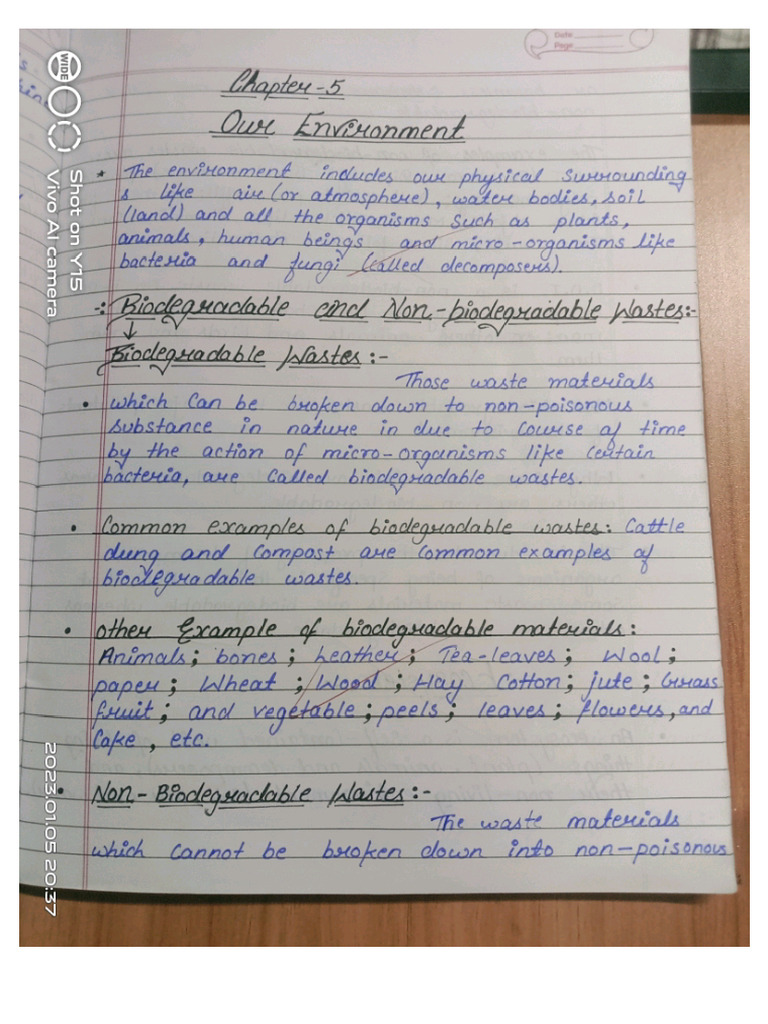 Date
Page
Chapter-5
Our Environment
* The environment includes our physical surrounding
s like air (or atmosphere), water bodies, soil
(land) and all the organisms such as plants,
animals, human beings and micro-organisms like
bacteria and fungi (called decomposers).
-: Biodegradable and Non-biodegradable Wastes:-
↓
Biodegradable Wastes :-
Those waste materials
• which can be broken down to non-poisonous
substance in nature in due to course of time
by the action of micro-organisms like certain
bacteria, are called biodegradable wastes.
• Common examples of biodegradable wastes: Cattle
dung and compost are common examples of
biodegradable wastes.
• Other Example of biodegradable materials:
Animals; bones; Leather; Tea-leaves; Wool;
paper; Wheat; Wood; Hay Cotton; jute; Grass
fruit; and vegetable; peels; leaves; flowers, and
Cake, etc.
• Non-Biodegradable Wastes:-
The waste materials
which cannot be broken down into non-poisonous
WIDE
Shot on Y15
Vivo AI camera
2023.01.05 20:37